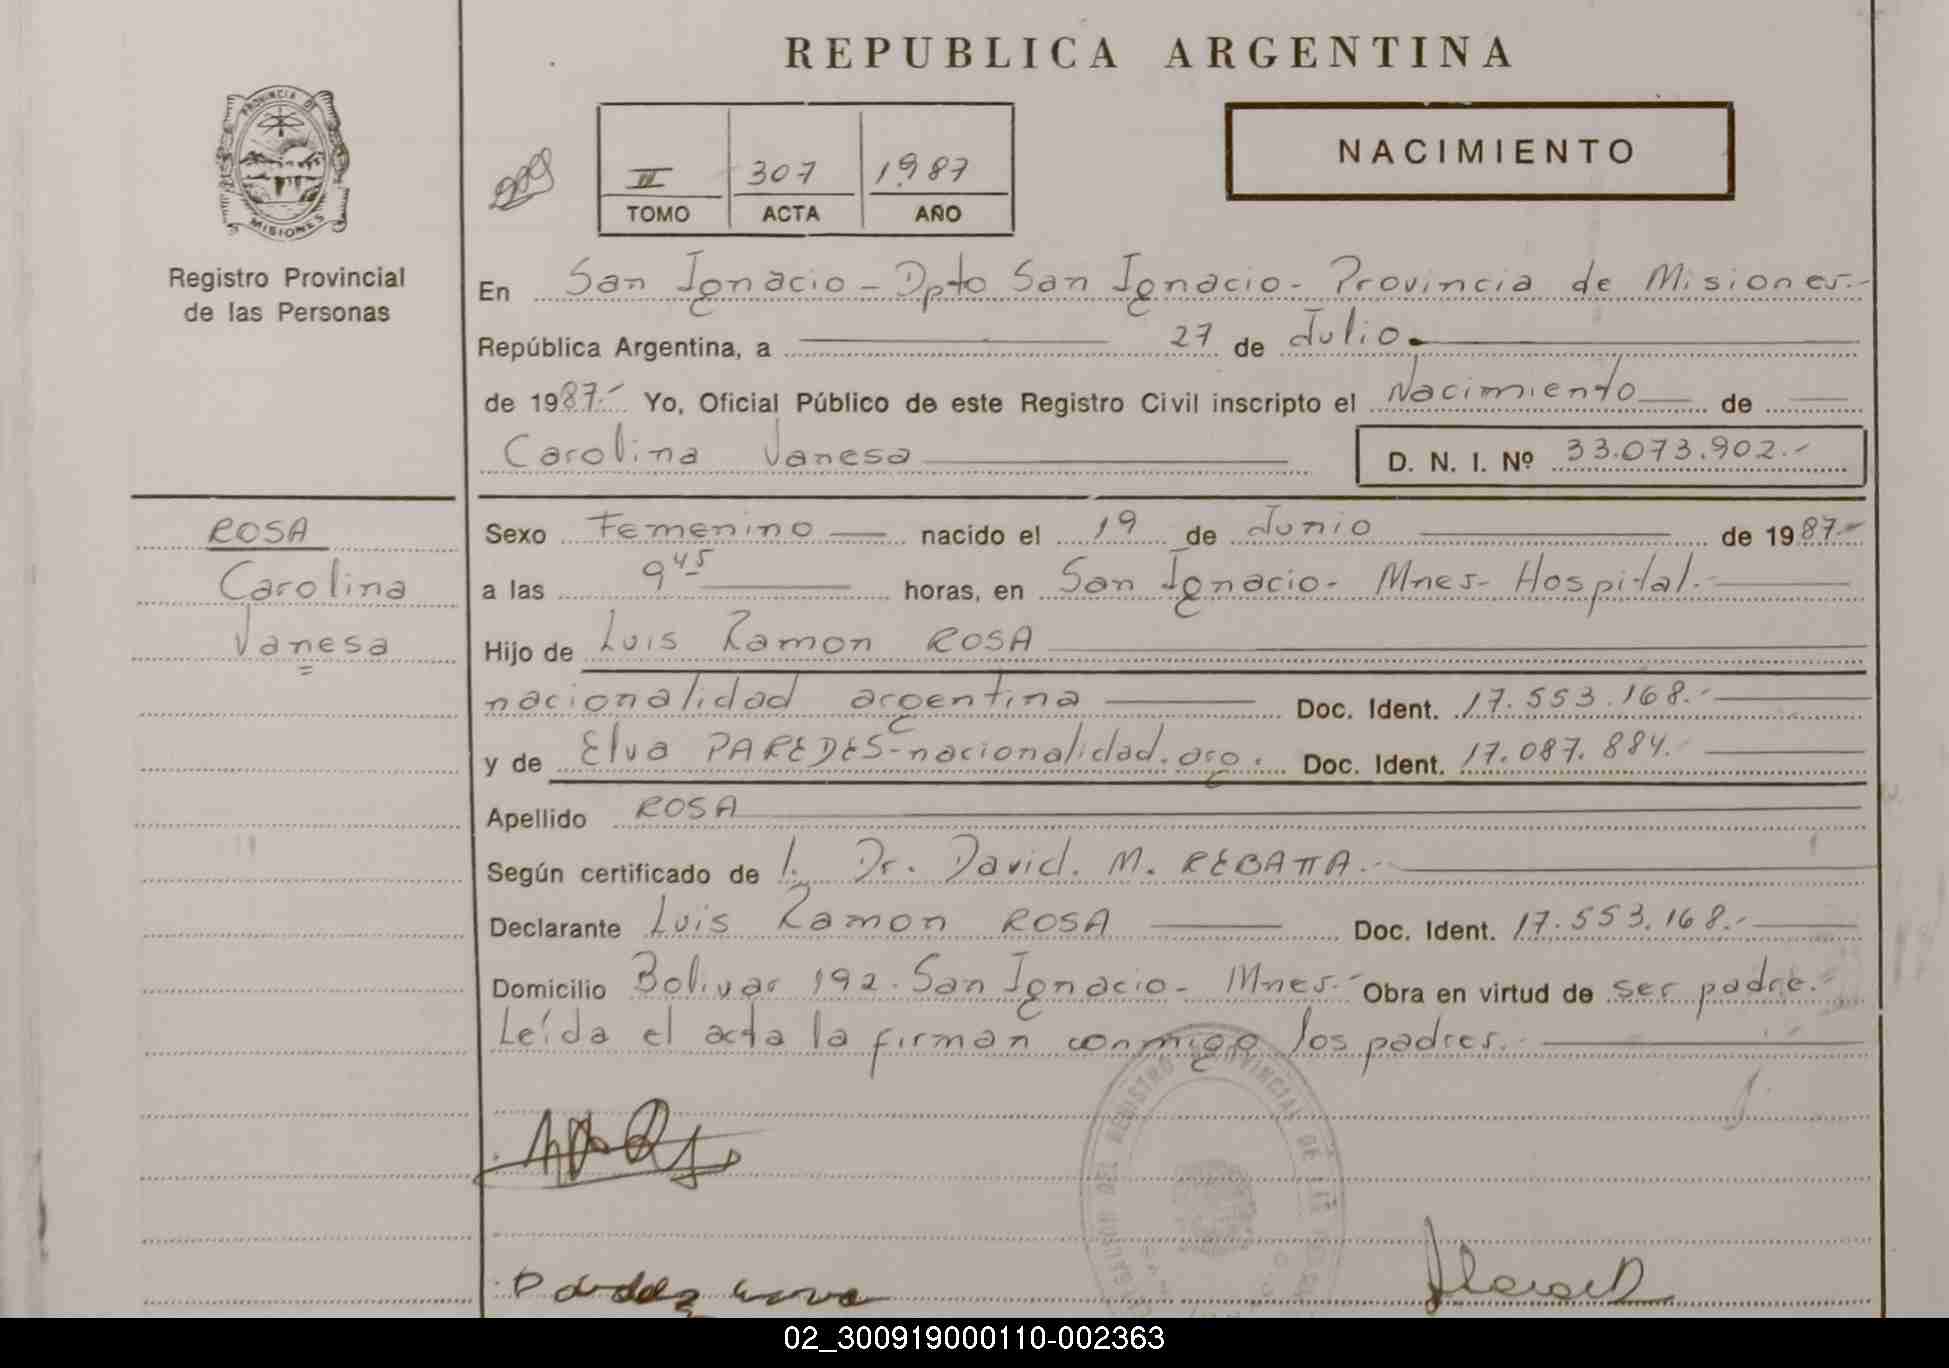 REPUBLICA ARGENTINA
PROVINCIA DE
MISIONES
Registro Provincial
de las Personas
III 307 1987
TOMO ACTA AÑO
NACIMIENTO
En San Ignacio - Dpto San Ignacio - Provincia de Misiones.-
República Argentina, a 27 de Julio.
de 1987.- Yo, Oficial Público de este Registro Civil inscripto el Nacimiento de
Carolina Vanesa
D. N. I. Nº 33.073.902.-
ROSA
Carolina
Vanesa
Sexo Femenino nacido el 19 de Junio de 1987.-
a las 9 45 horas, en San Ignacio - Mnes - Hospital.-
Hijo de Luis Ramon ROSA
nacionalidad argentina Doc. Ident. 17.553.168.-
y de Elva PAREDES - nacionalidad. arg. Doc. Ident. 17.087.884.-
Apellido ROSA
Según certificado de l. Dr. David. M. REBATTA.-
Declarante Luis Ramon ROSA Doc. Ident. 17.553.168.-
Domicilio Bolivar 192. San Ignacio - Mnes.- Obra en virtud de ser padre.-
Leída el acta la firman conmigo los padres.-
DEL REGISTRO PROVINCIAL DE
02_300919000110-002363